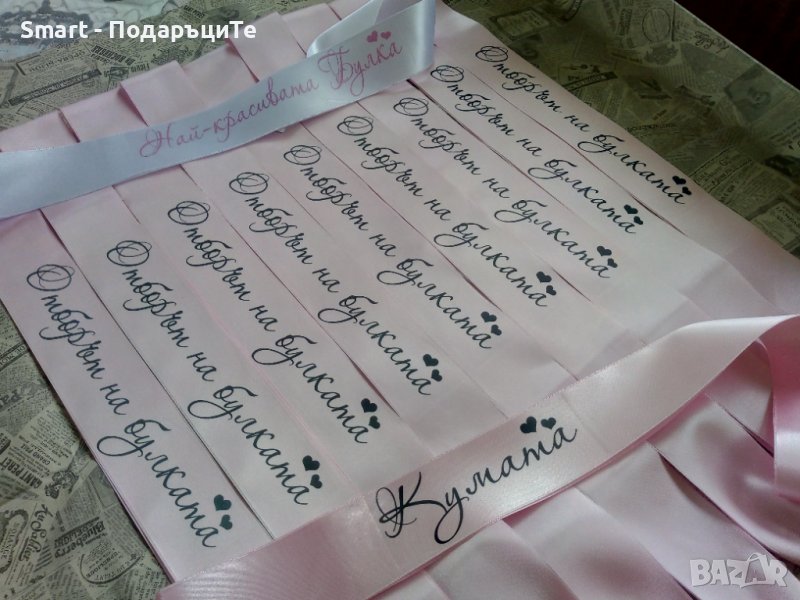 Smart - ПодаръциТе
Най-красивата Булка
Отборът на булката
Отборът на булката
Отборът на булката
Отборът на булката
Отборът на булката
Отборът на булката
Отборът на булката
Отборът на булката
Кумата
BAZAR